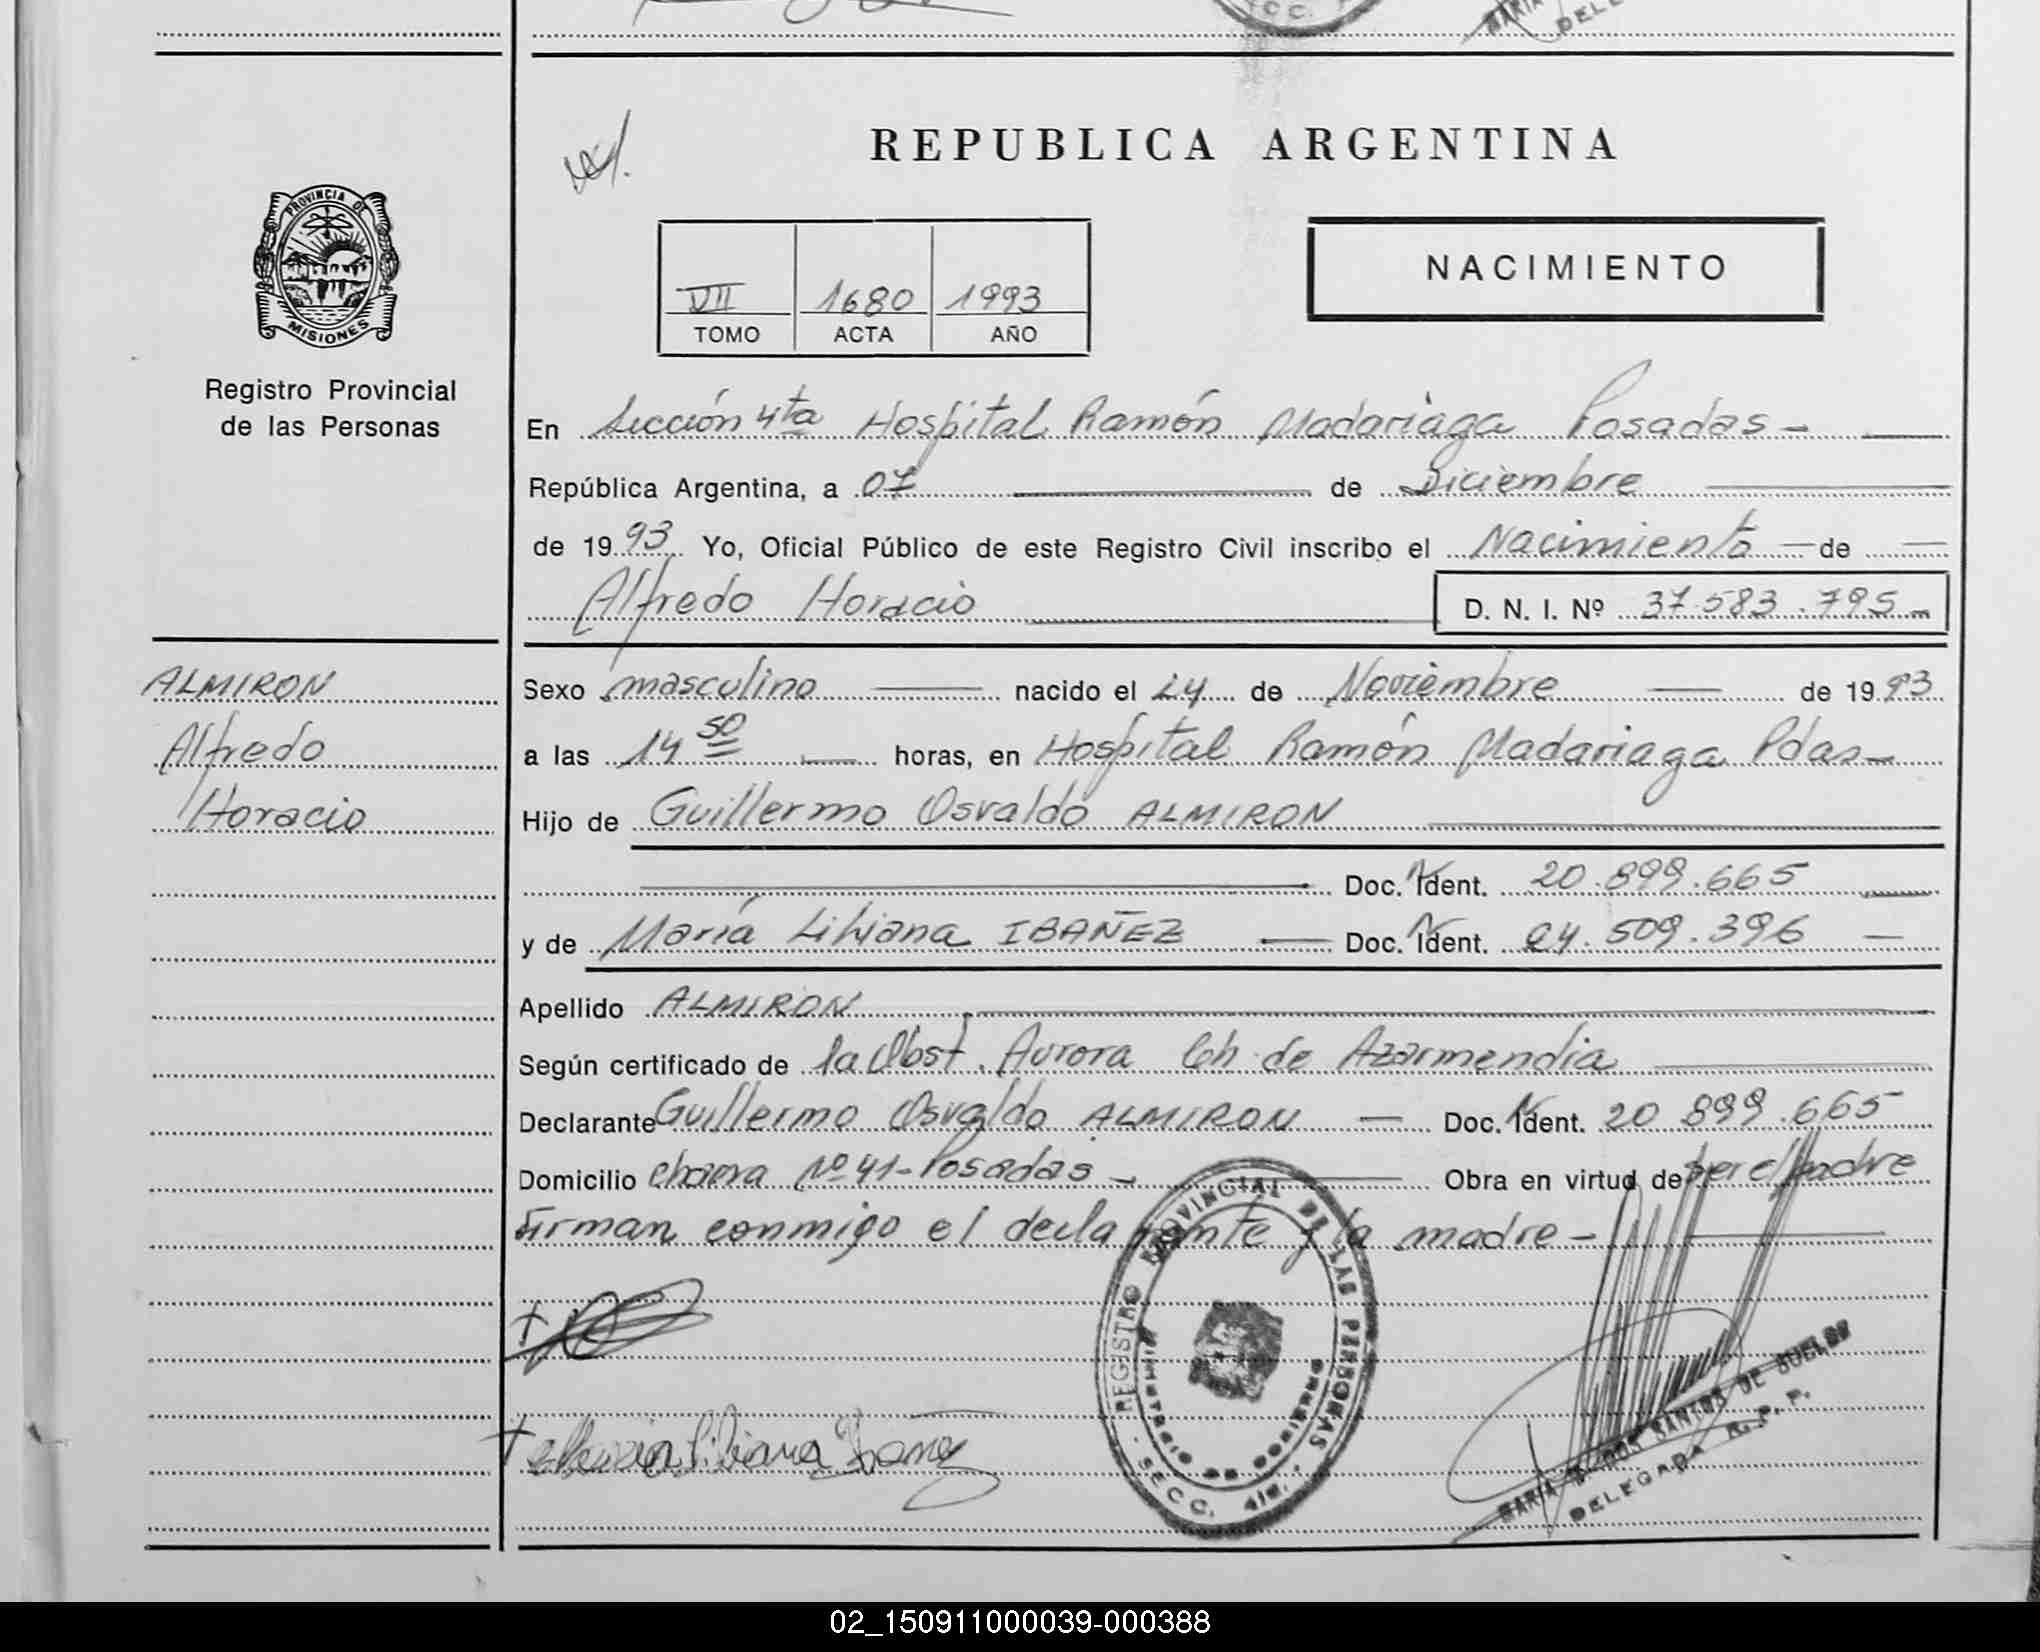 REPUBLICA ARGENTINA
PROVINCIA DE
MISIONES
Registro Provincial
de las Personas
VII 1680 1993
TOMO ACTA AÑO
NACIMIENTO
En Sección 4ta Hospital Ramón Madariaga Posadas -
República Argentina, a 07 de Diciembre
de 1993 Yo, Oficial Público de este Registro Civil inscribo el Nacimiento de
Alfredo Horacio D. N. I. Nº 37.583.795
ALMIRON
Alfredo
Horacio
Sexo masculino nacido el 24 de Noviembre de 1993
a las 14 50 horas, en Hospital Ramón Madariaga Pdas-
Hijo de Guillermo Osvaldo ALMIRON
Doc. N Ident. 20.899.665
y de María Liliana IBAÑEZ Doc. N Ident. 24.509.396
Apellido ALMIRON
Según certificado de la Obst. Aurora Ch. de Azarmendia
Declarante Guillermo Osvaldo ALMIRON Doc. N Ident. 20 899.665
Domicilio chacra Nº 41-Posadas - Obra en virtud de ser el padre
Firman conmigo el declarante y la madre -
Maria Liliana Ibañez
REGISTRO PROVINCIAL DE LAS PERSONAS
MINISTERIO DE GOBIERNO
SECC. 4ta.
MARIA DOS SANTOS DE BUELOR
DELEGADA R. P. P.
02_150911000039-000388